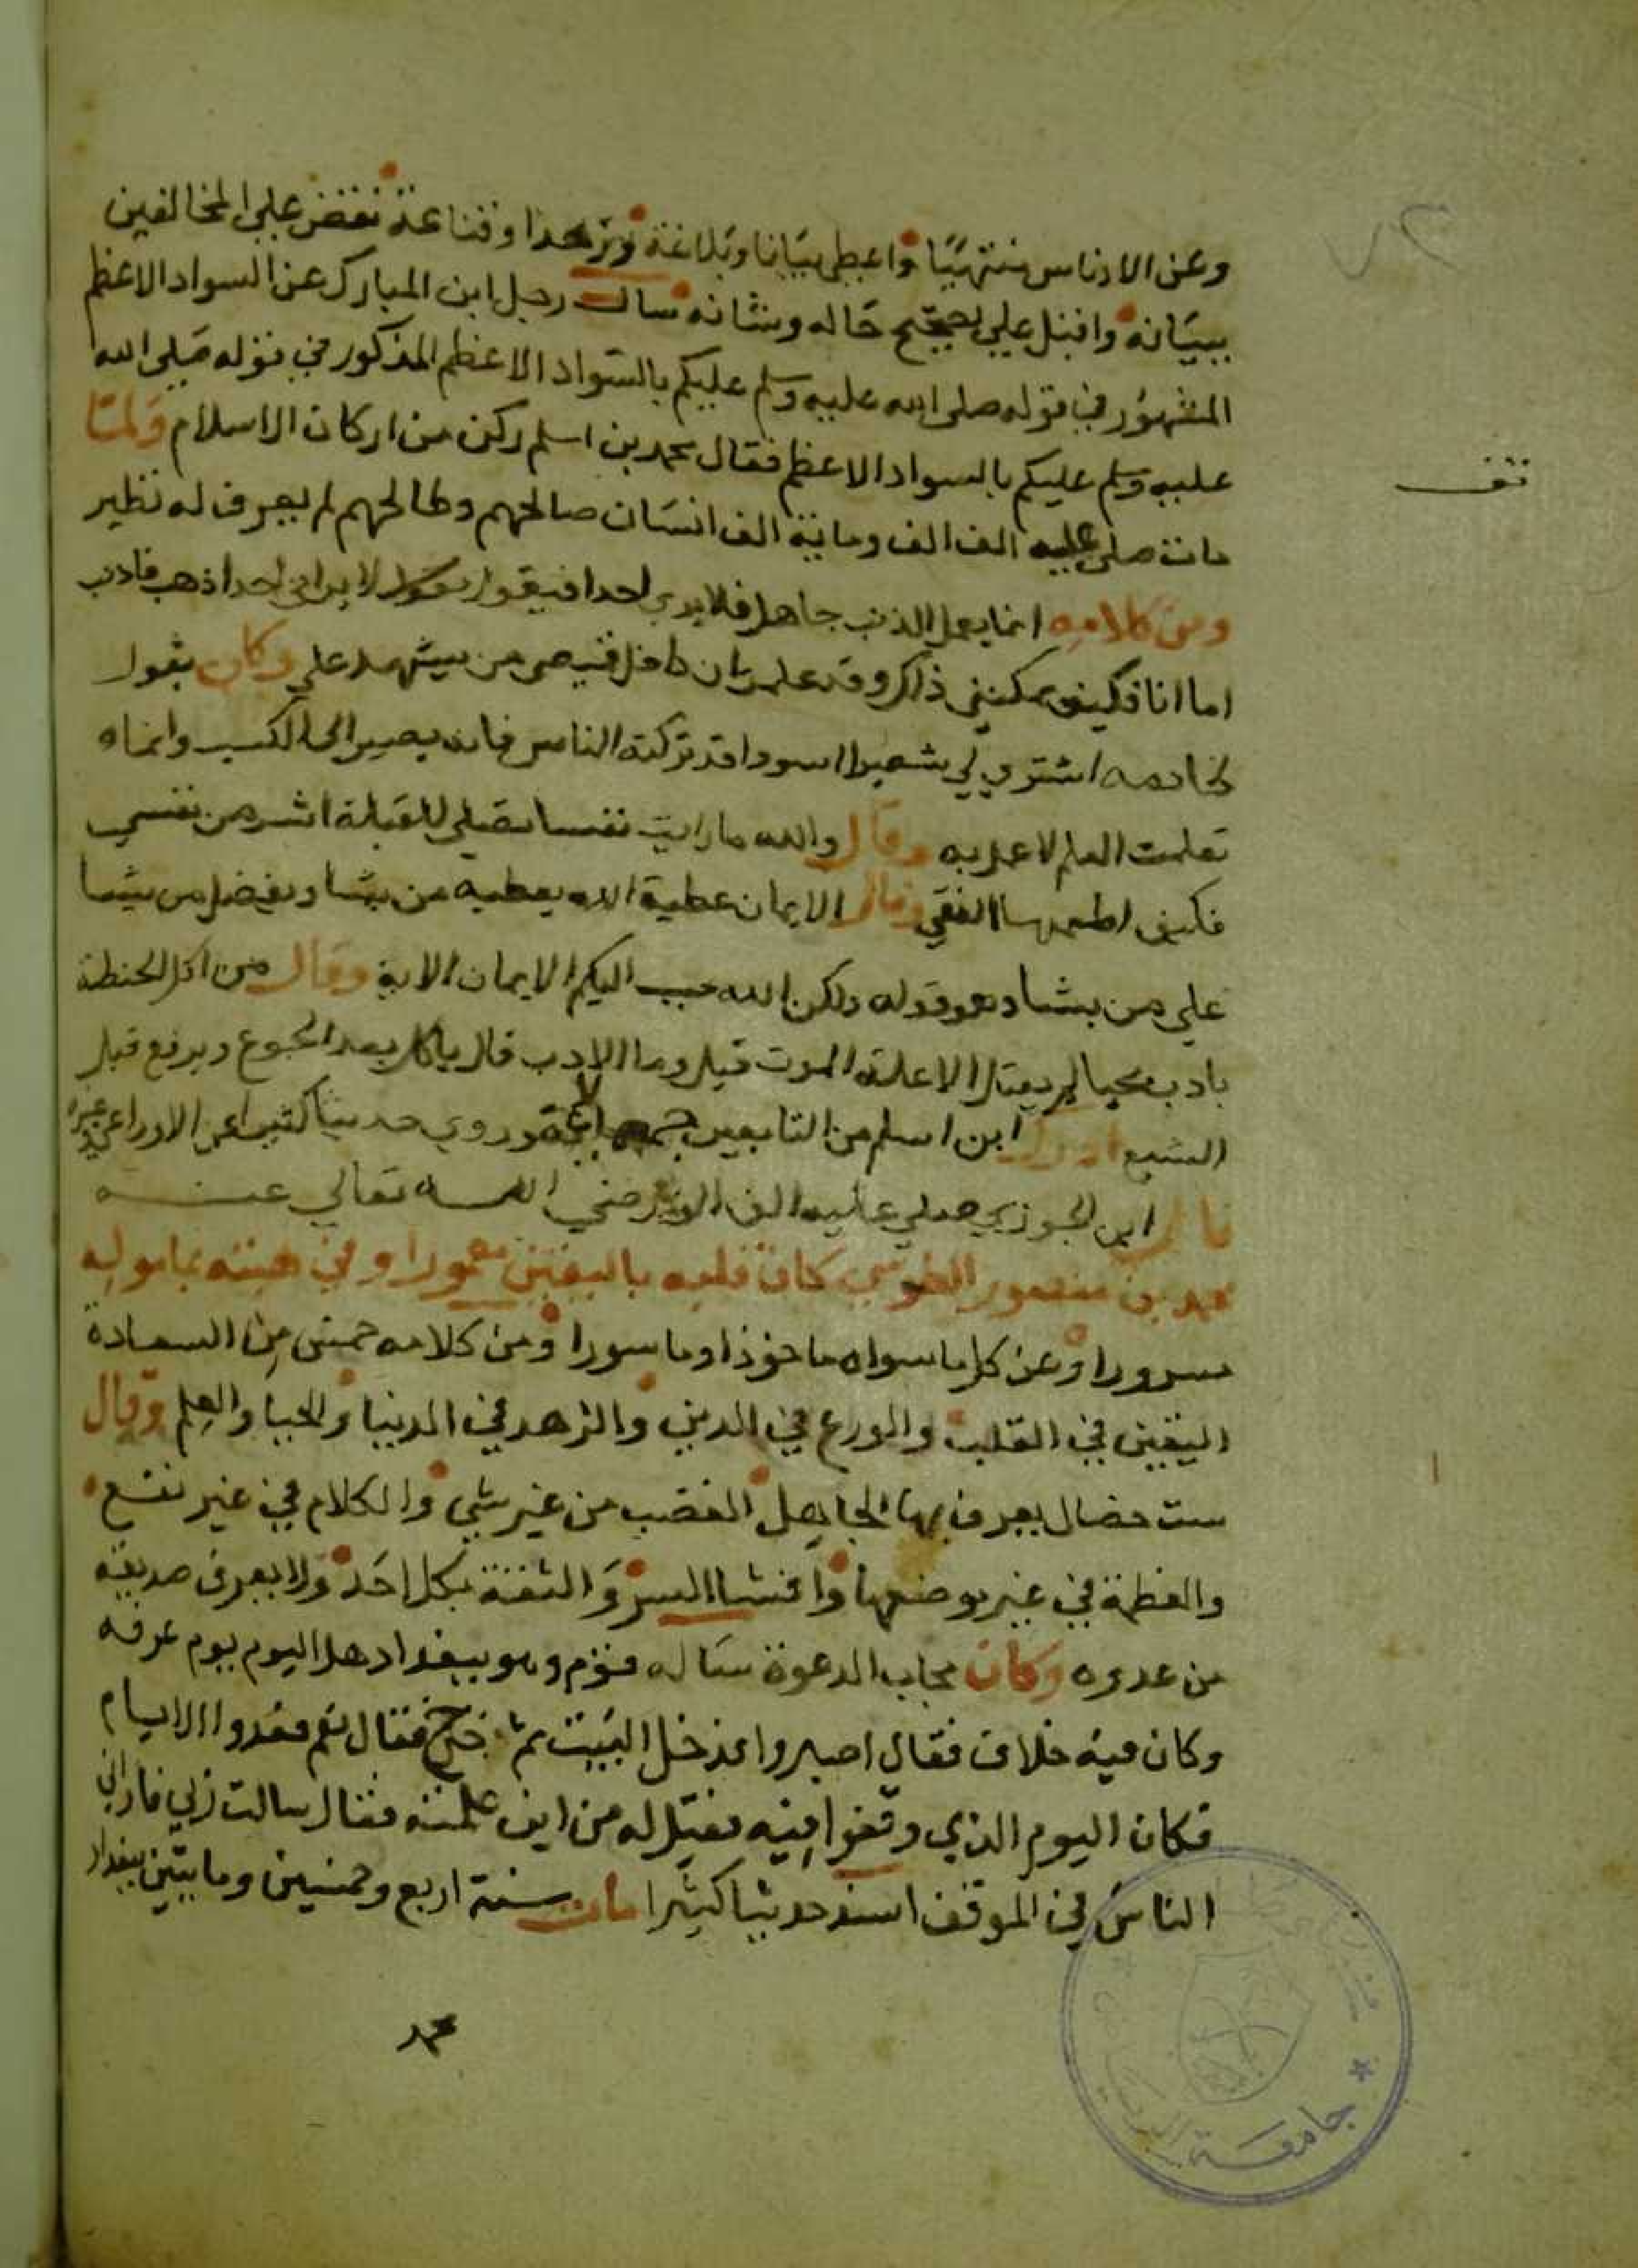 ٧٢
وعن الادناس منتهيا واعطي بيانا وبلاغة وزهدا وقناعة نقض علي المخالفين
ببيانه واقبل علي تصحيح حاله وشانه سال رجل ابن المبارك عن السواد الاعظم
المشهور في قوله صلى الله عليه وسلم عليكم بالسواد الاعظم المذكور في قوله صلى الله
عليه وسلم عليكم بالسواد الاعظم فقال محمد بن اسلم ركن من اركان الاسلام ولما
مات صلى عليه الف الف ومائة الف انسان صالحهم وطالحهم لم يعرف له نظير
ومن كلامه انما يعمل الذنب جاهل فلا يري احدا فيقول لا يراني احدا ذهب فاذنب
اما انا فكيف يمكنني ذلك وقد علمت ان داخل قميصي من يشهد علي وكان يقول
لخادمه اشتري لي شعيرا اسودا قد تركته الناس فانه يصير الى الكنيف وانماه
تعلمت العلم لاعمل به وقال والله ما رايت نفسا تصلي للقبلة اشر من نفسي
فكيف اطعمها النقي وقال الايمان عطية الله يعطيه من يشا ويفضل من يشا
علي من يشا وهو قوله ولكن الله حبب اليكم الايمان الاية وقال من اكل الحنطة
بادب لم يعتل الا علة الموت قيل وما الادب قال ياكل بعد الجوع ويرفع قبل
الشبع ادرك ابن اسلم من التابعين وروي حديثا كثيرا عن الاوزاعي وغيره
قال ابن الجوزي صلي عليه الف الف رضي الله تعالي عنه
محمد بن منصور الطوسي كان قلبه باليقين معمورا وفي هيئته بمامولِه
مسرورا وعن كل ما سواه ماخوذا وماسورا ومن كلامه خمس من السعادة
اليقين في القلب والورع في الدين والزهد في الدنيا والحيا والعلم وقال
ست خصال يعرف بها الجاهل الغضب من غير شي والكلام في غير نفع
والعظة في غير موضعها وافشا السر والثقة بكل احد ولا يعرف صديقه
من عدوه وكان مجاب الدعوة ساله قوم وهو ببغداد هل اليوم يوم عرفه
وكان فيه خلاف فقال اصبروا فدخل البيت ثم خرج فقال نعم فعدوا الايام
فكان اليوم الذي وقفوا فيه فقيل له من اين علمته فقال سالت ربي فاراني
الناس في الموقف اسند حديثا كثيرا مات سنة اربع وخمسين ومايتين ببغداد
محمد
جامعة